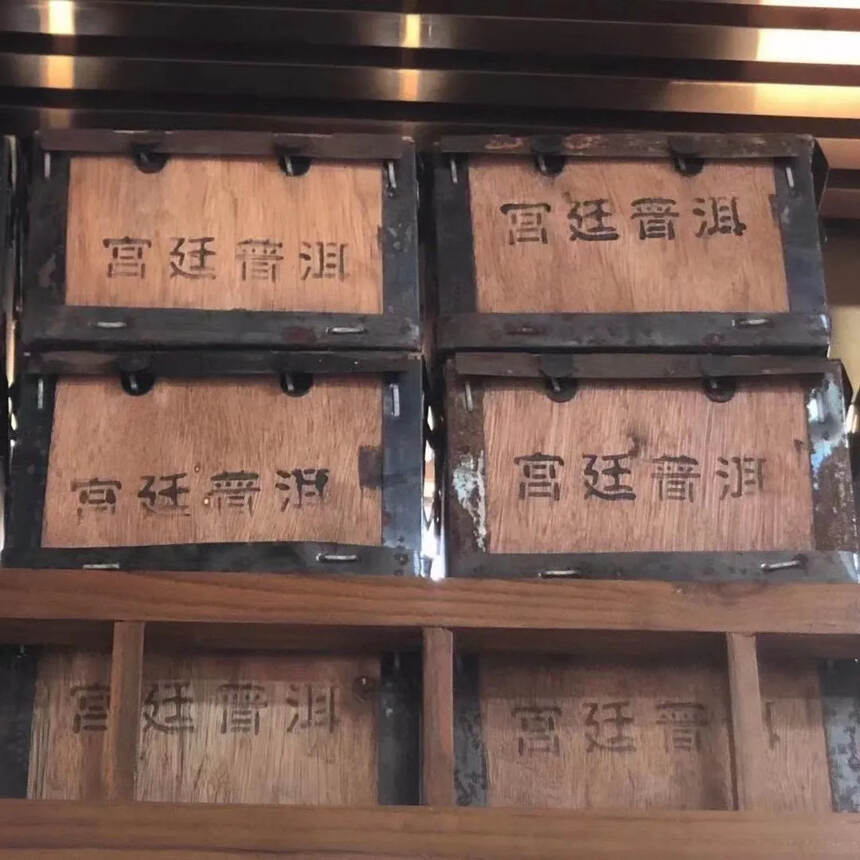 宫廷普洱
宫廷普洱
宫廷普洱
宫廷普洱
宫廷普洱
宫廷普